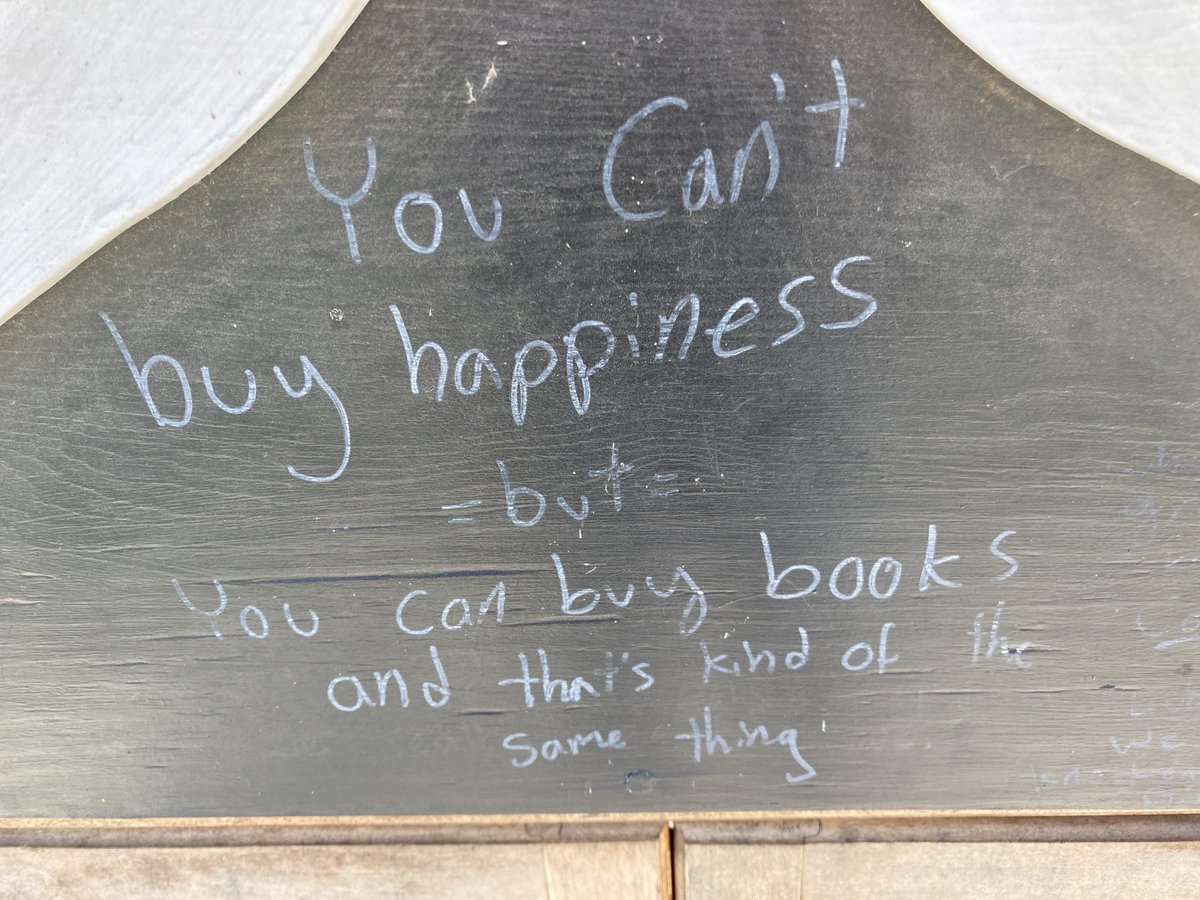 You Can't
buy happiness
=but=
You can buy books
and that's kind of the
same thing